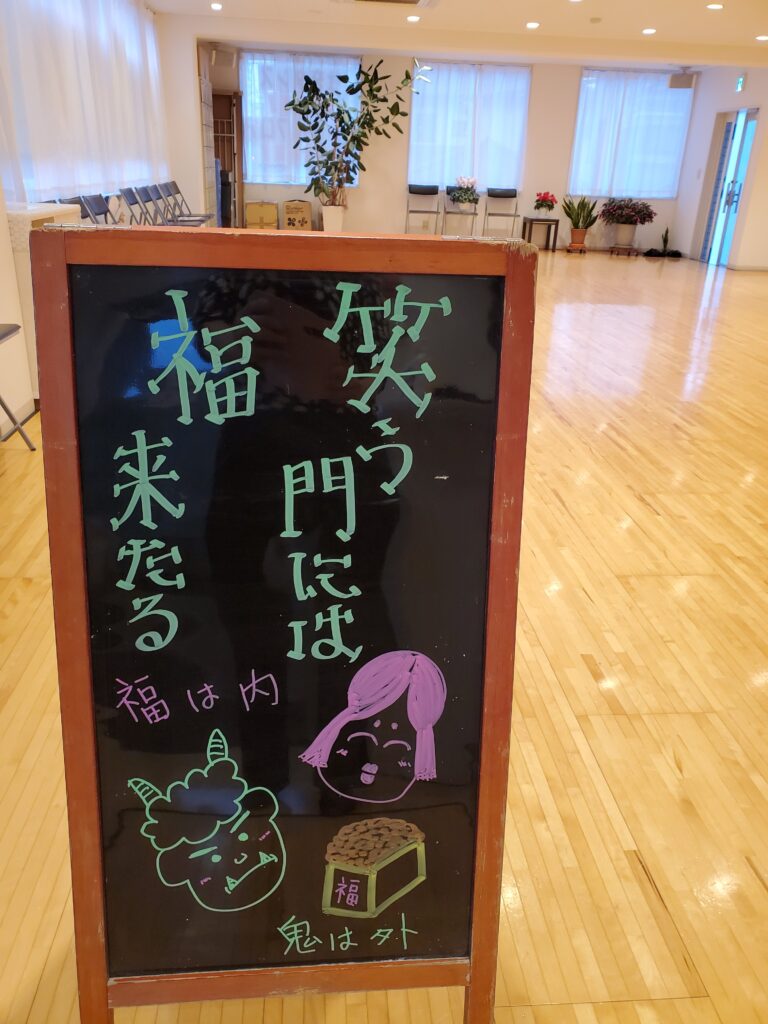 笑う
門には
福
来たる
福は内
福
鬼は外